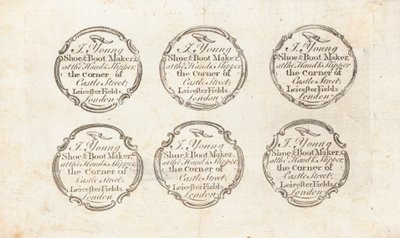 I. Young
Shoe & Boot Maker,
at the Hand & Slipper,
the Corner of
Castle Street,
Leicester Fields,
London
I. Young
Shoe & Boot Maker,
at the Hand & Slipper,
the Corner of
Castle Street,
Leicester Fields,
London
I. Young
Shoe & Boot Maker,
at the Hand & Slipper,
the Corner of
Castle Street,
Leicester Fields,
London
I. Young
Shoe & Boot Maker,
at the Hand & Slipper,
the Corner of
Castle Street,
Leicester Fields,
London
I. Young
Shoe & Boot Maker,
at the Hand & Slipper,
the Corner of
Castle Street,
Leicester Fields,
London
I. Young
Shoe & Boot Maker,
at the Hand & Slipper,
the Corner of
Castle Street,
Leicester Fields,
London